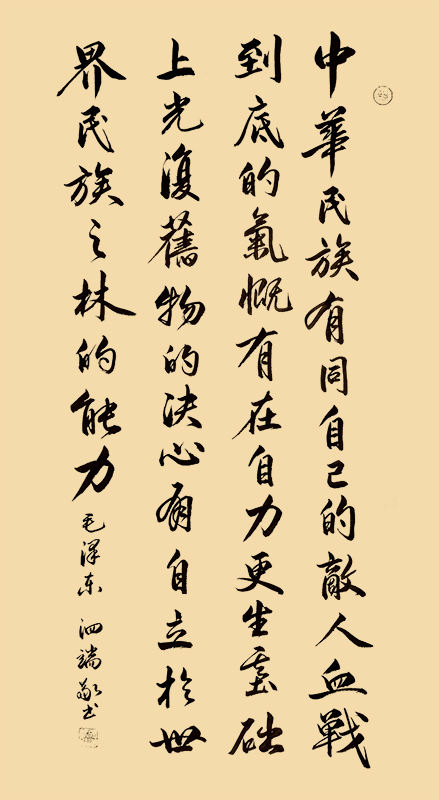 中華民族有同自己的敵人血戰
到底的氣慨有在自力更生基础
上光復舊物的決心有自立於世
界民族之林的能力 毛澤东 泗端敬书